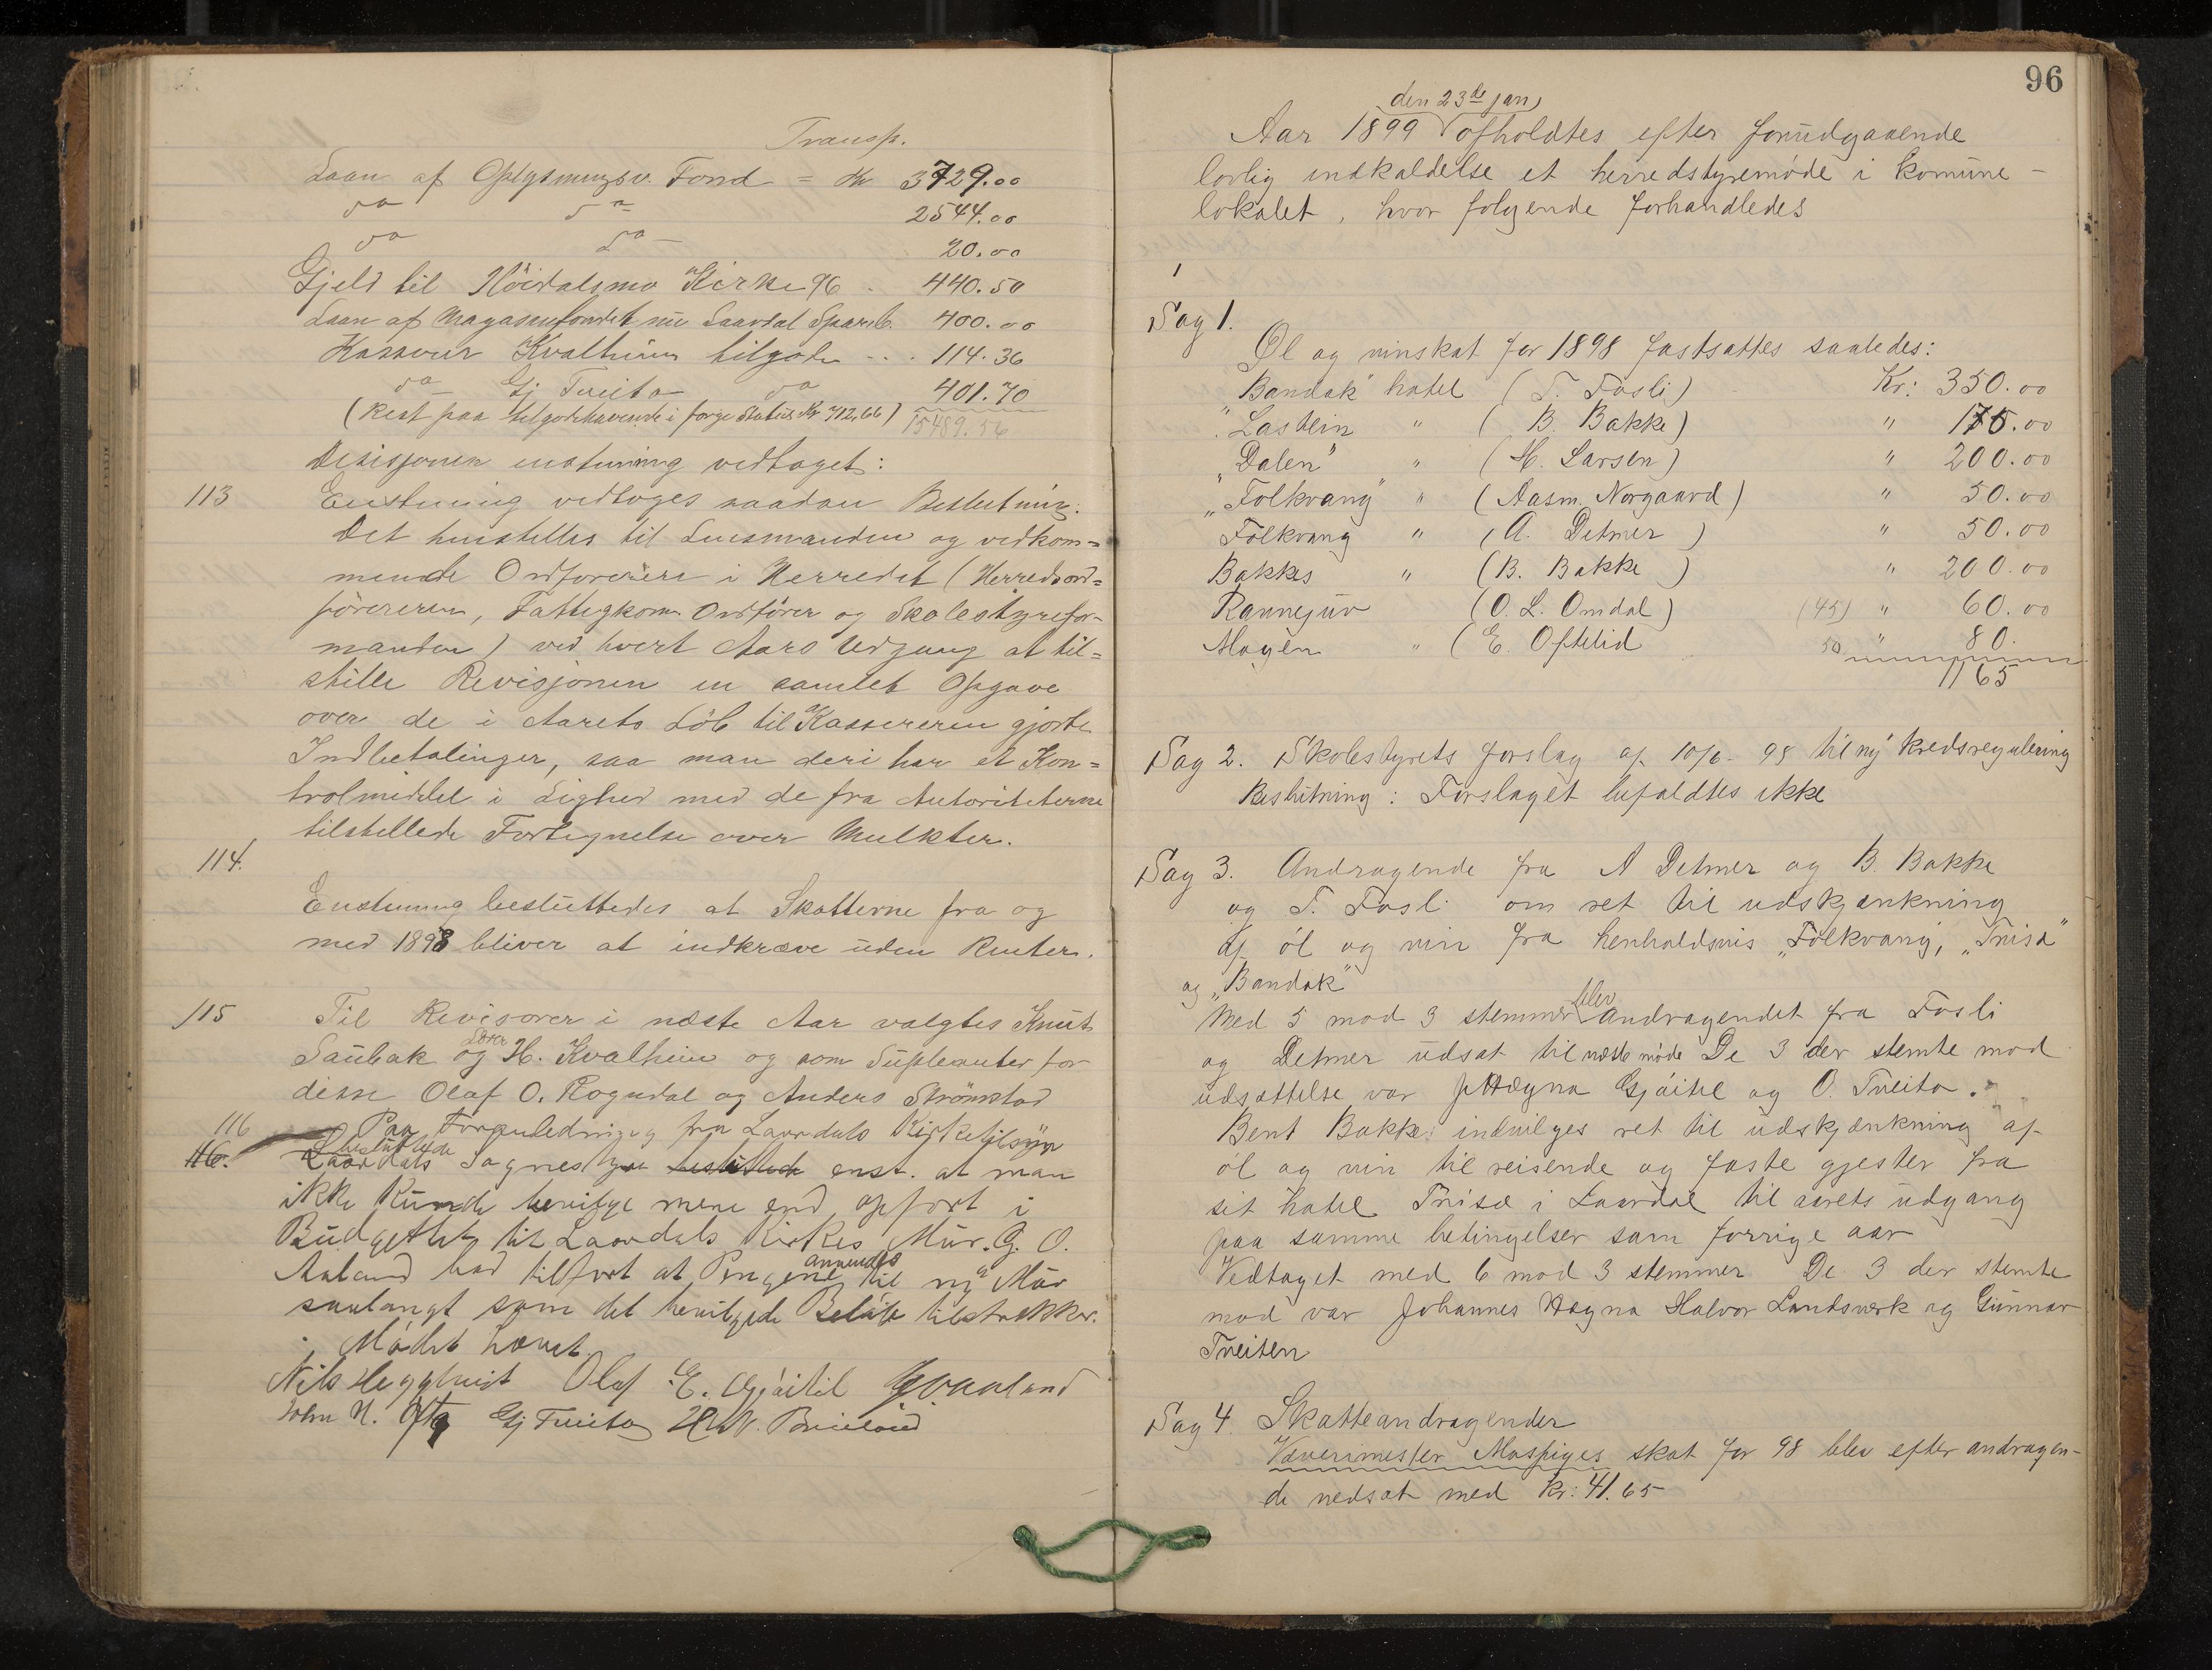 Transp.
Laan af Oplysningsv. Fond = Kr 3729.00
do do 2544.00
do do 20.00
Gjeld til Höidalsmo Kirke 96 . 440.50
Laan af Magasinfondet nu Laardal Spareb. 400.00
Kasserer Kvalheim tilgode ... 114.36
do Gj Tveito do 401.70
(Rest paa tilgodehavende i forige Status Kr 712,66) 15489.56
Desisjonens enstemmig vedtaget:
113 Enstemmig vedtoges saadan Beslutning:
Det henstilles til Lensmanden og vedkom=
mende Ordförere i Herredet (Herredsord=
föreren, Fattigkom. Ordförer og Skolestyrefor-
manden) ved hvert Aars Udgang at til=
stille Revisjonen en samlet Opgave
over de i Aarets Löb til Kassereren gjorte
Indbetalinger, saa man deri har et Kon=
trolmiddel i Lighed med de fra Autoriteterne
tilstillede Fortegnelse over Mulkter.
114.
Enstemmig besluttedes at Skatterne fra og
med 1898 bliver at indkræve uden Renter.
115 Til Revisorer i næste Aar valgtes Knut
Saubak og Lærer H. Kvalheim og som Supleanter for
disse Olaf O. Rogndal og Anders Strömstad
116 Paa Foranledning fra Laardals Kirketilsyn
116. besluttede
Laardals Sognestyre besluttede enst. at man
ikke kunde bevilge mere end opfört i
Budgettet til Laardals Kirkes Mur. G. O.
Aaland bad tilfört at Pengene anvendes til ny Mur
saalangt som det bevilgede Belöb tilstrækker.
Mödet hævet.
Nils Heggtveit Olaf E. Gjöitil G O Aaland
John N. Ofte Gj Tveito H N. Breiland
96
den 23de jan,
Aar 1899 afholdtes efter forudgaaende
lovlig indkaldelse et herredstyremöde i komune-
lokalet, hvor folgende forhandledes
Sag 1.
Øl og vinskat for 1898 fastsattes saaledes:
"Bandak" hotel (T. Fosli) Kr: 350.00
"Lastein " (B. Bakke) " 175.00
"Dalen" " (H. Larsen) " 200.00
"Folkvang" " (Aasm. Norgaard) " 50.00
Folkvang " (A. Detmer) " 50.00
Bakkes " (B. Bakke) " 200.00
Rannejuv (O. L. Omdal) (45) " 60.00
Mogen " (E. Oftelid 50 " 80.
1165
Sag 2. Skolestyrets forslag af 10/6-98 til ny kredsregulering
Beslutning: Forslaget bifaldtes ikke
Sag 3. Andragende fra A Detmer og B. Bakke
og T. Fosli om ret til udskjænkning
af öl og vin fra henholdsvis "Folkvang, "Trisæ"
og "Bandak"
Med 5 mod 3 stemmer blev andragendet fra Fosli
og Detmer udsat til næste möde De 3 der stemte mod
udsættelse var J Hægna Gjöitil og O. Tveito.
Bent Bakke indvilges ret til udskjænkning af
öl og vin til reisende og faste gjester fra
sit hotel Trisæ i Laardal til aarets udgang
paa samme betingelser som forrige aar
Vedtaget med 6 mod 3 stemmer De 3 der stemte
mod var Johannes Hægna Halvor Landsverk og Gunnar
Tveiten
Sag 4. Skatteandragender
Væverimester Maspiges skat for 98 blev efter andragen-
de nedsat med kr: 41.65